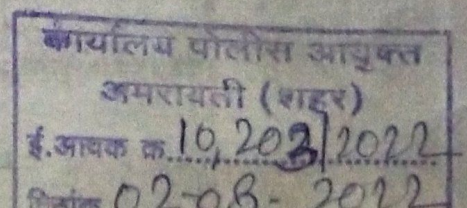 कार्यालय पोलीस आयुक्त
अमरावती (शहर)
ई.आवक क्र. 10,203/2022
दिनांक 02-08-2022